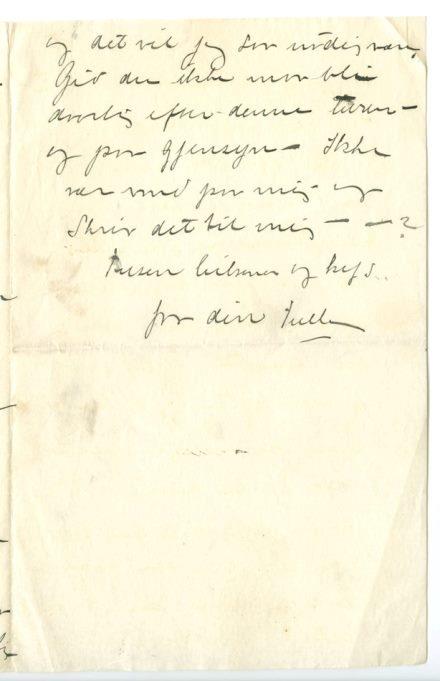 og det vil jeg saa nødig være,
Gid du ikke maa bli
daarlig efter denne turen –
og paa gjensyn – Ikke
vær vred paa mig og
skriv det til mig – – ?
Tusen hilsener og kys..
fra din Tulla